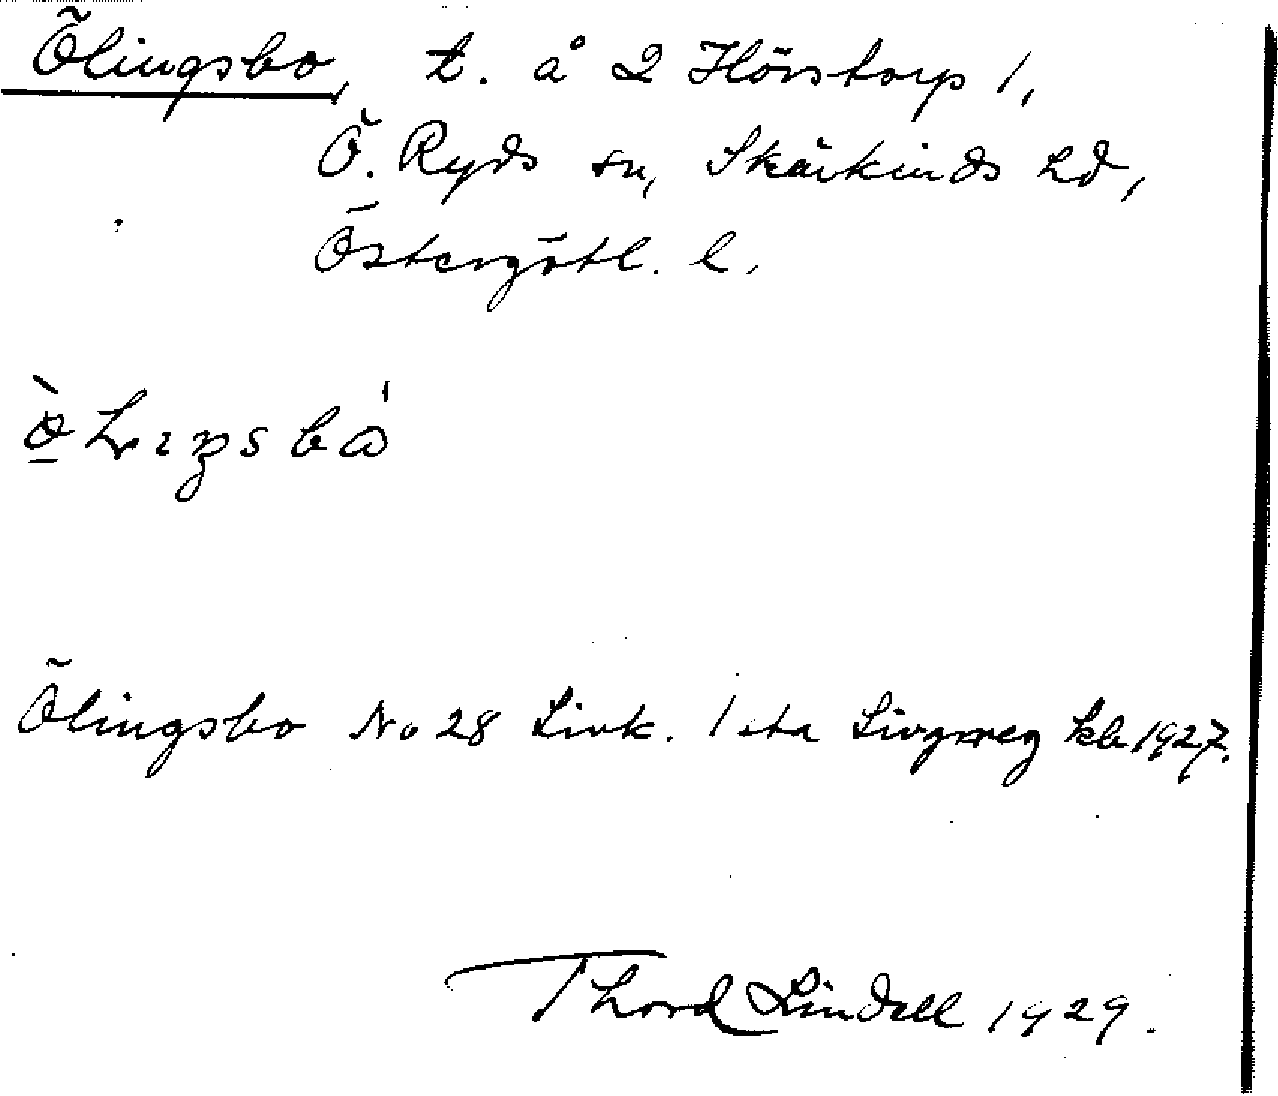 Ölingsbo, t. å 2 Hörstorp 1,
Ö. Ryds sn, Skärkinds hd,
Östergötl. l.
Ölingsbo No 28 Link. 1sta Livgreg kb 1927.
Thord Lindell 1929.